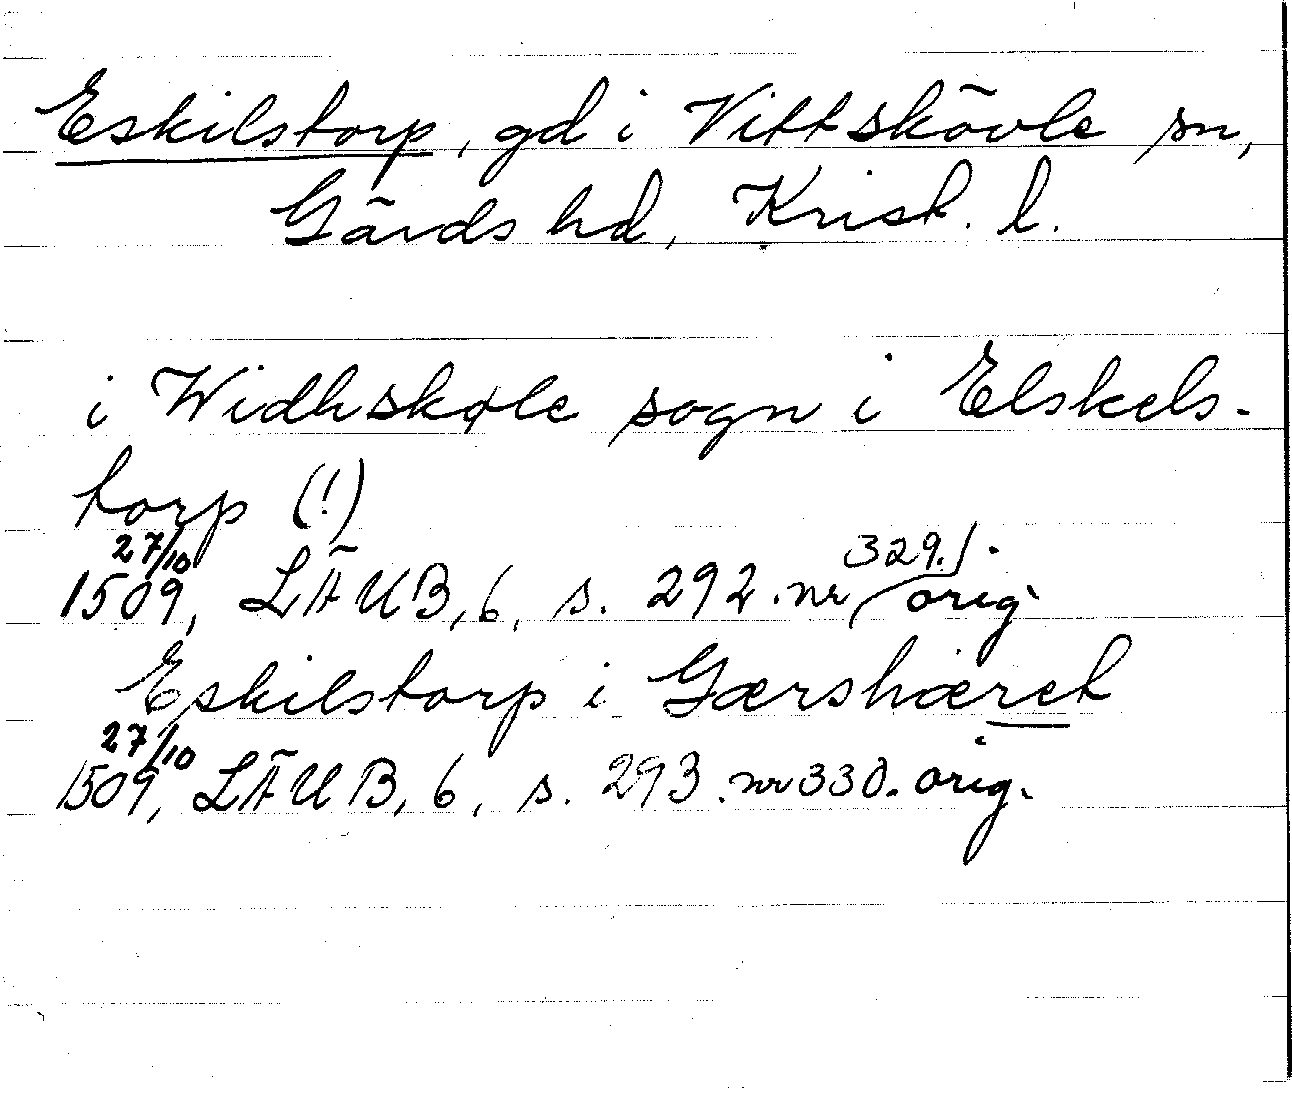 Eskilstorp, gd i Vittskövle sn,
Gärds hd, Krist. l.
i Widhskøle sogn i Elskels-
torp (!)
27/10 1509, LÄUB, 6, s. 292. nr 329. orig.
Eskilstorp i Gærshæret
27/10 1509, LÄUB, 6, s. 293. nr 330. orig.